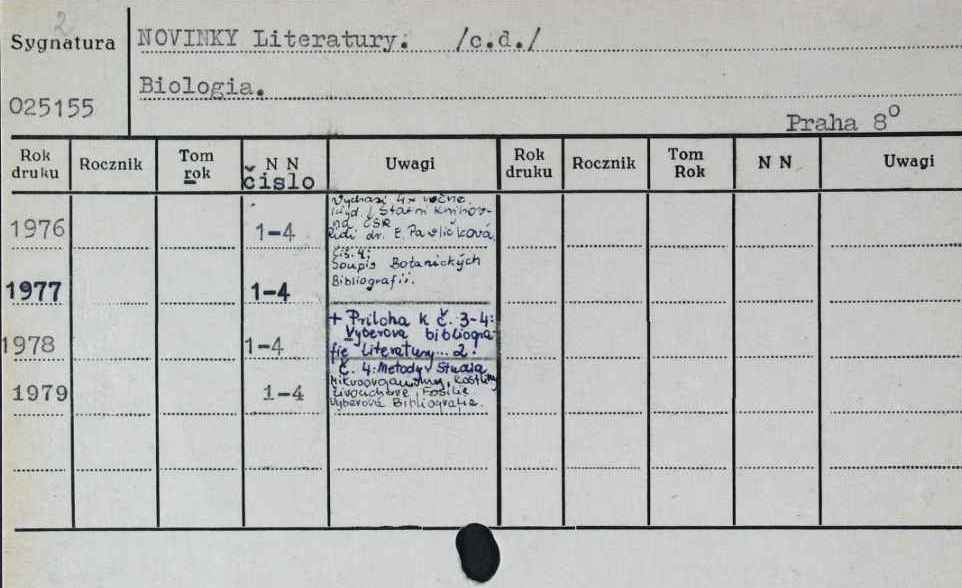 2
Sygnatura
NOVINKY Literatury. /c.d./
Biologia.
025155
Praha 8°
Rok druku Rocznik Tom rok N N čislo Uwagi Rok druku Rocznik Tom Rok N N Uwagi
Vychasi 4x ročne
1976 1-4
Vyd. Statni Knihov-
na ČSR
Řidi dr. E. Pavličková
čis. 4:
Soupis Botanických
Bibliografii.
1977 1-4
+ Priloha k č. 3-4:
Vyberova bibliogra-
fie literatury... 2.
1978 1-4
č. 4: Metody Studia
Mikroorganismy, Rostliny
1979 1-4
Živočichové, Fosilie
Vyberová Bibliografie.